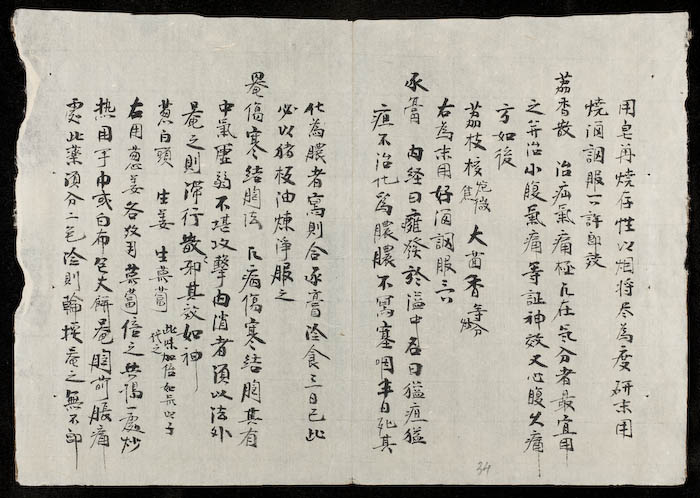 用皂再燒存性以烟將尽為度研末用
燒酒調服一許即效
荔香散 治疝氣痛極凡在氣分者最宜用
之并治小腹氣痛等証神效又心腹久痛
方如後
荔枝核炮微焦 大茴香等分炒
右為末用好酒調服三六
豕膏 內経曰癰發於嗌中名曰猛疽猛
疽不治化為膿膿不寫塞咽半日死其
化為膿者寫則合豕膏冷食三日已此
必以猪板油煉淨服之
罨傷寒結胸法 凡病傷寒結胸其有
中氣虛弱不堪攻擊內消者須以法外
罨之則滯行散邪其效如神
葱白頭 生姜 生萊菔此味加倍如無以子代之
右用葱姜各数萊菔倍之共搗一處炒
热用手巾或白布包大餅罨胸前脹痛
處此藥須分二包冷則輪換罨之無不即
34